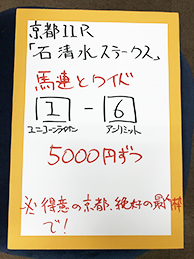 京都11R
「石清水ステークス」
馬連とワイド
1 - 6
ユニコーンライオン アンリミット
5000円ずつ
※得意の京都、絶好の最内枠
で!